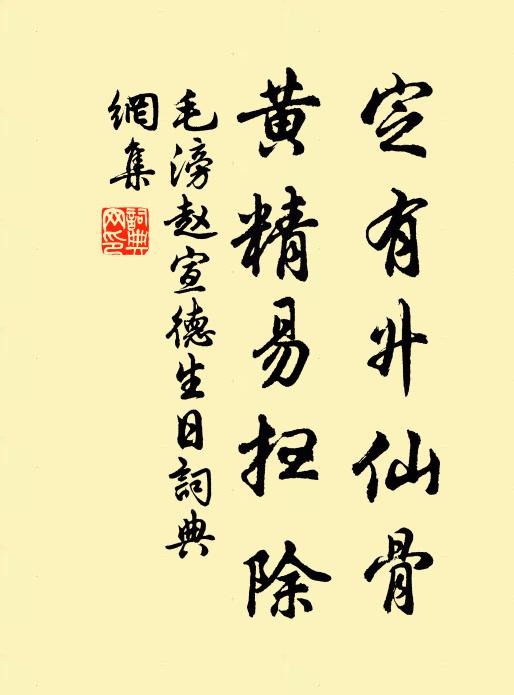 定有升仙骨
黄精易扫除
毛滂赵宣德生日詞典
網集
詞典网印